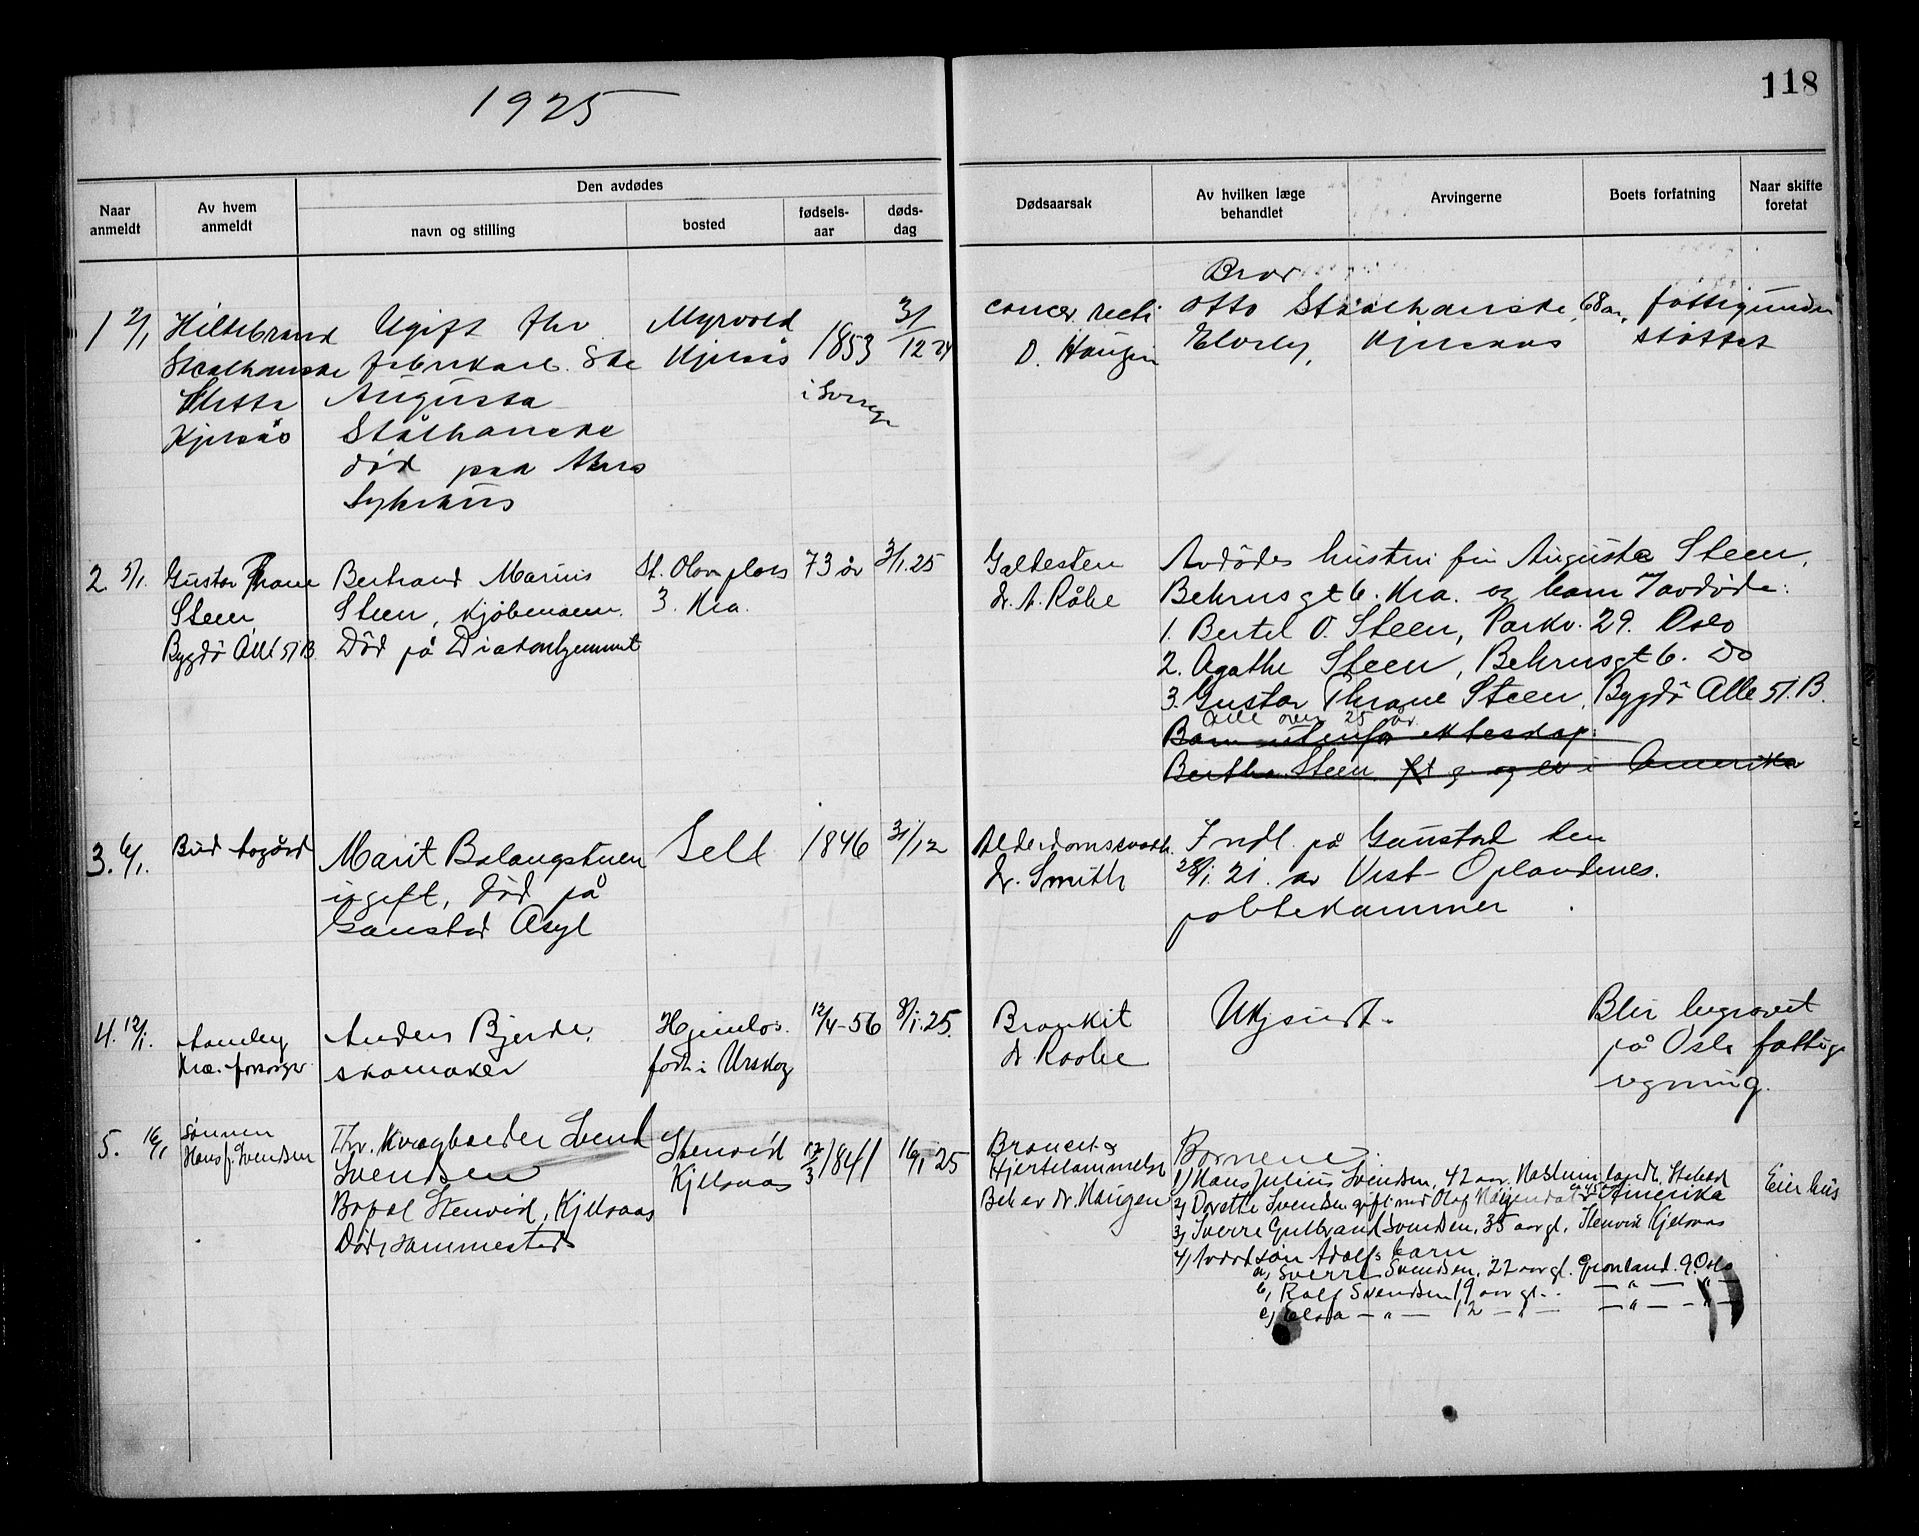 1925
118
Naar anmeldt
Av hvem anmeldt
Den avdødes
navn og stilling
bosted
fødsels-aar
døds-dag
Dødsaarsak
Av hvilken læge behandlet
Arvingerne
Boets forfatning
Naar skifte foretat
1 2/1
Hildebrand
Staalhanske
Kjelsås
Ugift fhv
Augusta
Stålhanske
død paa Akers
Sykehus
Myrvold
Kjelsås
1853
i Sverige
31/12 24
cancer recti
D. Haugen
Bror
Otto Stålhanske, 68 aar,
Elvely, Kjelsaas
støttet
2. 5/1.
Gustav Thrane
Steen
Bygdö Allé 51 B.
Bertrand Marius
Steen, Kjöbmann.
Död på Diakonhjemmet
St. Olavs plass
3. Kra.
73 år
3/1.25
Galdesten
dr. A. Råbe
Avdödes hustru fru Augusta Steen,
Behrnsgt 6. Kra. og barn 7 avdöde:
1. Bertel O. Steen, Parkv. 29. Oslo
2. Agathe Steen, Behrnsgt 6. Do
3. Gustav Thrane Steen, Bygdö Alle 51. B.
Alle over 25 år.
Barn utenfor ekteskap:
Bertha Steen gift og er i Amerika
3. 6/1.
Bud Asgård
Marit Bolongstuen
ugift, död på
Gaustad Asyl
Sell
1846
31/12
Alderdomssvakh.
dr. Smith
Indl. på Gaustad den
28/1. 21. av Vest-Oplandenes.
politikammer
4. 12/1.
Kra. forsorger
Anders Bjerke.
skomaker
Hjemlös.
födt i Urskog
12/4-56
8/1.25.
Bronkit
dr. Raabe
Ukjendt.
Blir begravet
på Oslo fattig
regning.
5. 16/1
Sønnen
Hans J. Svendsen
Fhv. Kvæghandler Svend
Svendsen
Bopæl Stenvid, Kjelsaas
Död sammesteds
Stenvid
Kjelsaas
12/3 1841
16/1 25
Broncit &
Hjertelammelse
Beh av dr. Haugen
Børnene:
1) Hans Julius Svendsen, 42 aar,
2) Dorette Svendsen gift med Olaf Haugen Amerika
3) Sverre Gulbrand Svendsen, 35 aar gl. Stenvid Kjelsaas
4) Avdød søn Adolfs barn
a) Sverre Svendsen, 22 aar gl. Grønland 9. Oslo
b) Rolf Svendsen 19 aar gl. — " — "
c) Elsa — " — 12 — " — — " — "
Eier hus